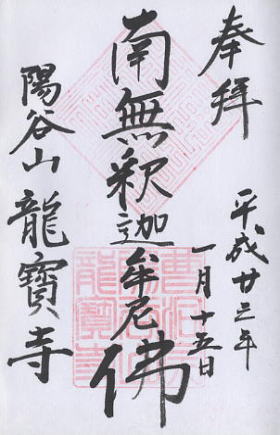 奉拜
平成廿三年
一月十五日
南無釈迦牟尼佛
陽谷山龍寶寺